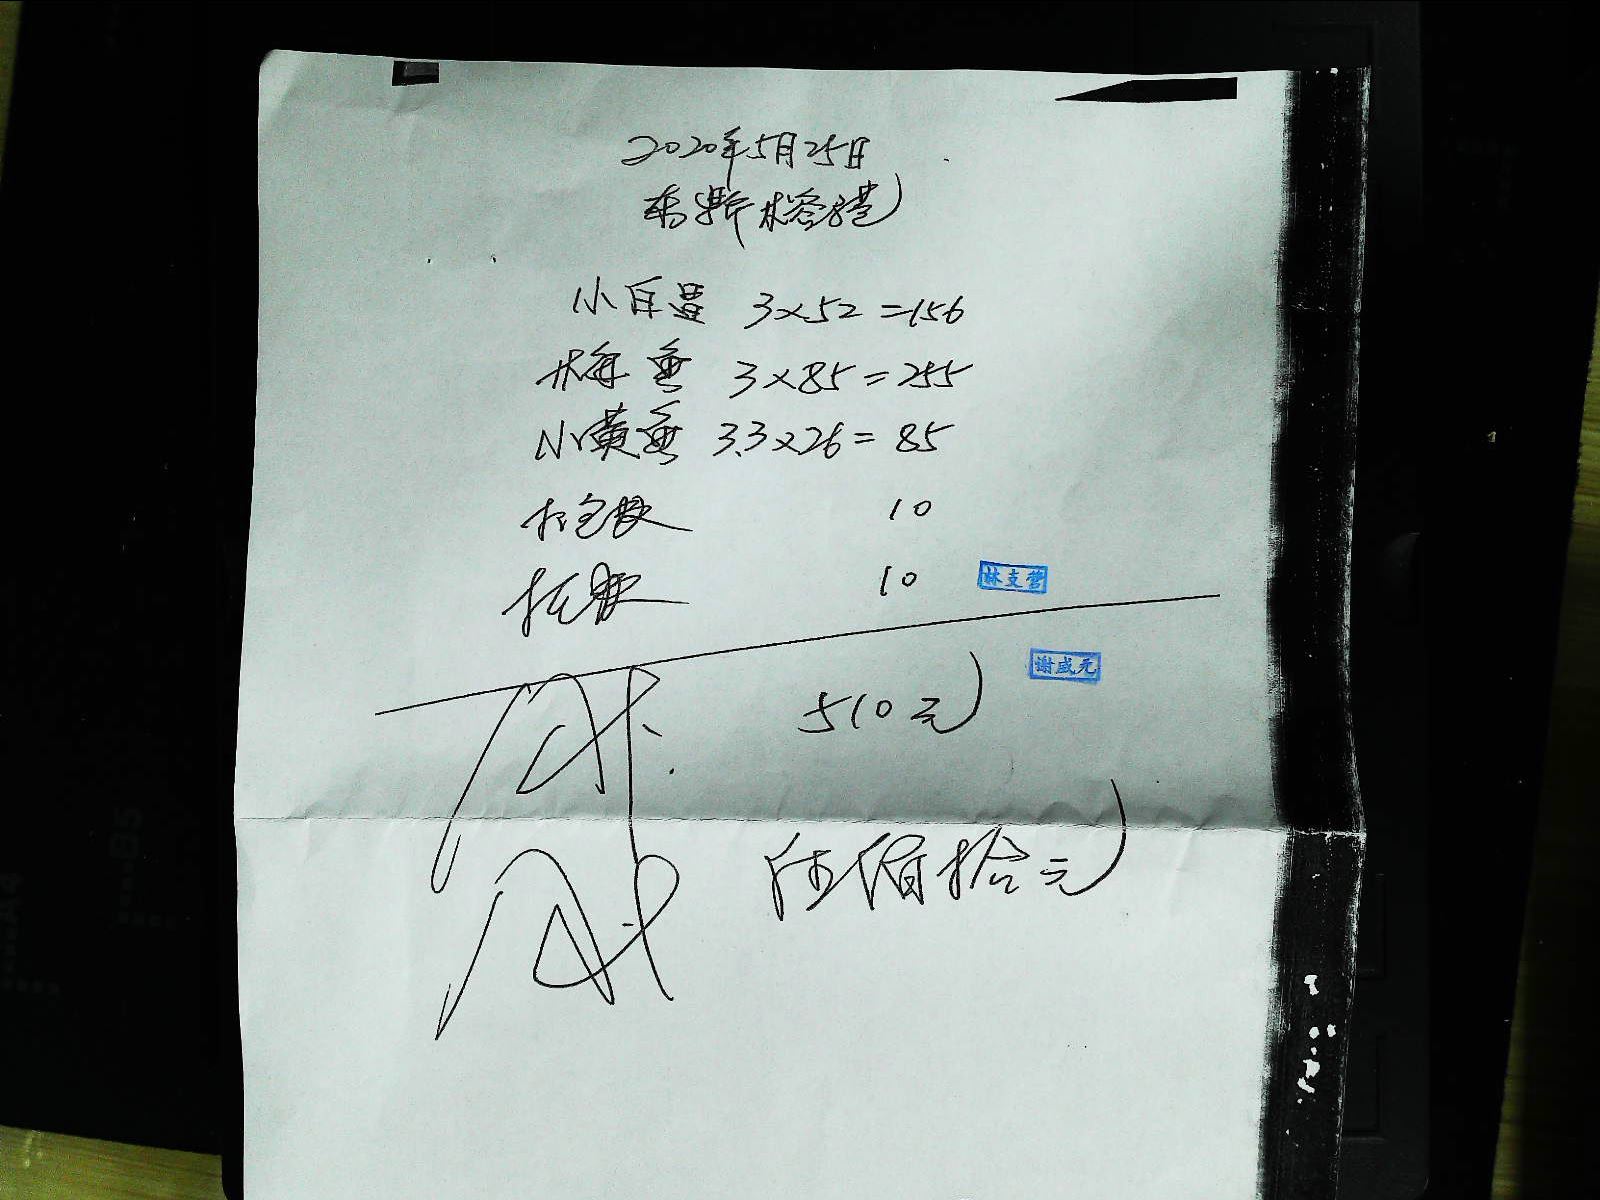 2020年5月25日
小白鱼 3×52=156
梅鱼 3×85=255
小黄鱼 3.3×26=85
打包费 10
托费 10
林支营
谢盛元
510元
伍佰拾元